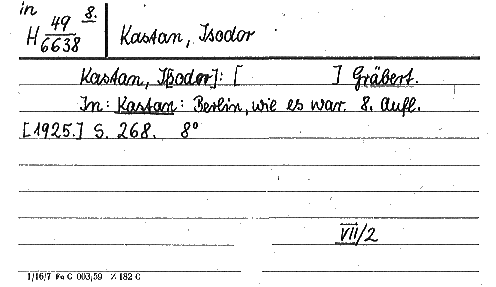 in
H 49/6638 8. Kastan, Isodor
Kastan, I[sodor]: [ ] Gräbert.
In: Kastan: Berlin, wie es war. 8. Aufl.
[1925.] S. 268. 8°
VII/2
1/16/7 Fa G 003,59 Z 182 C